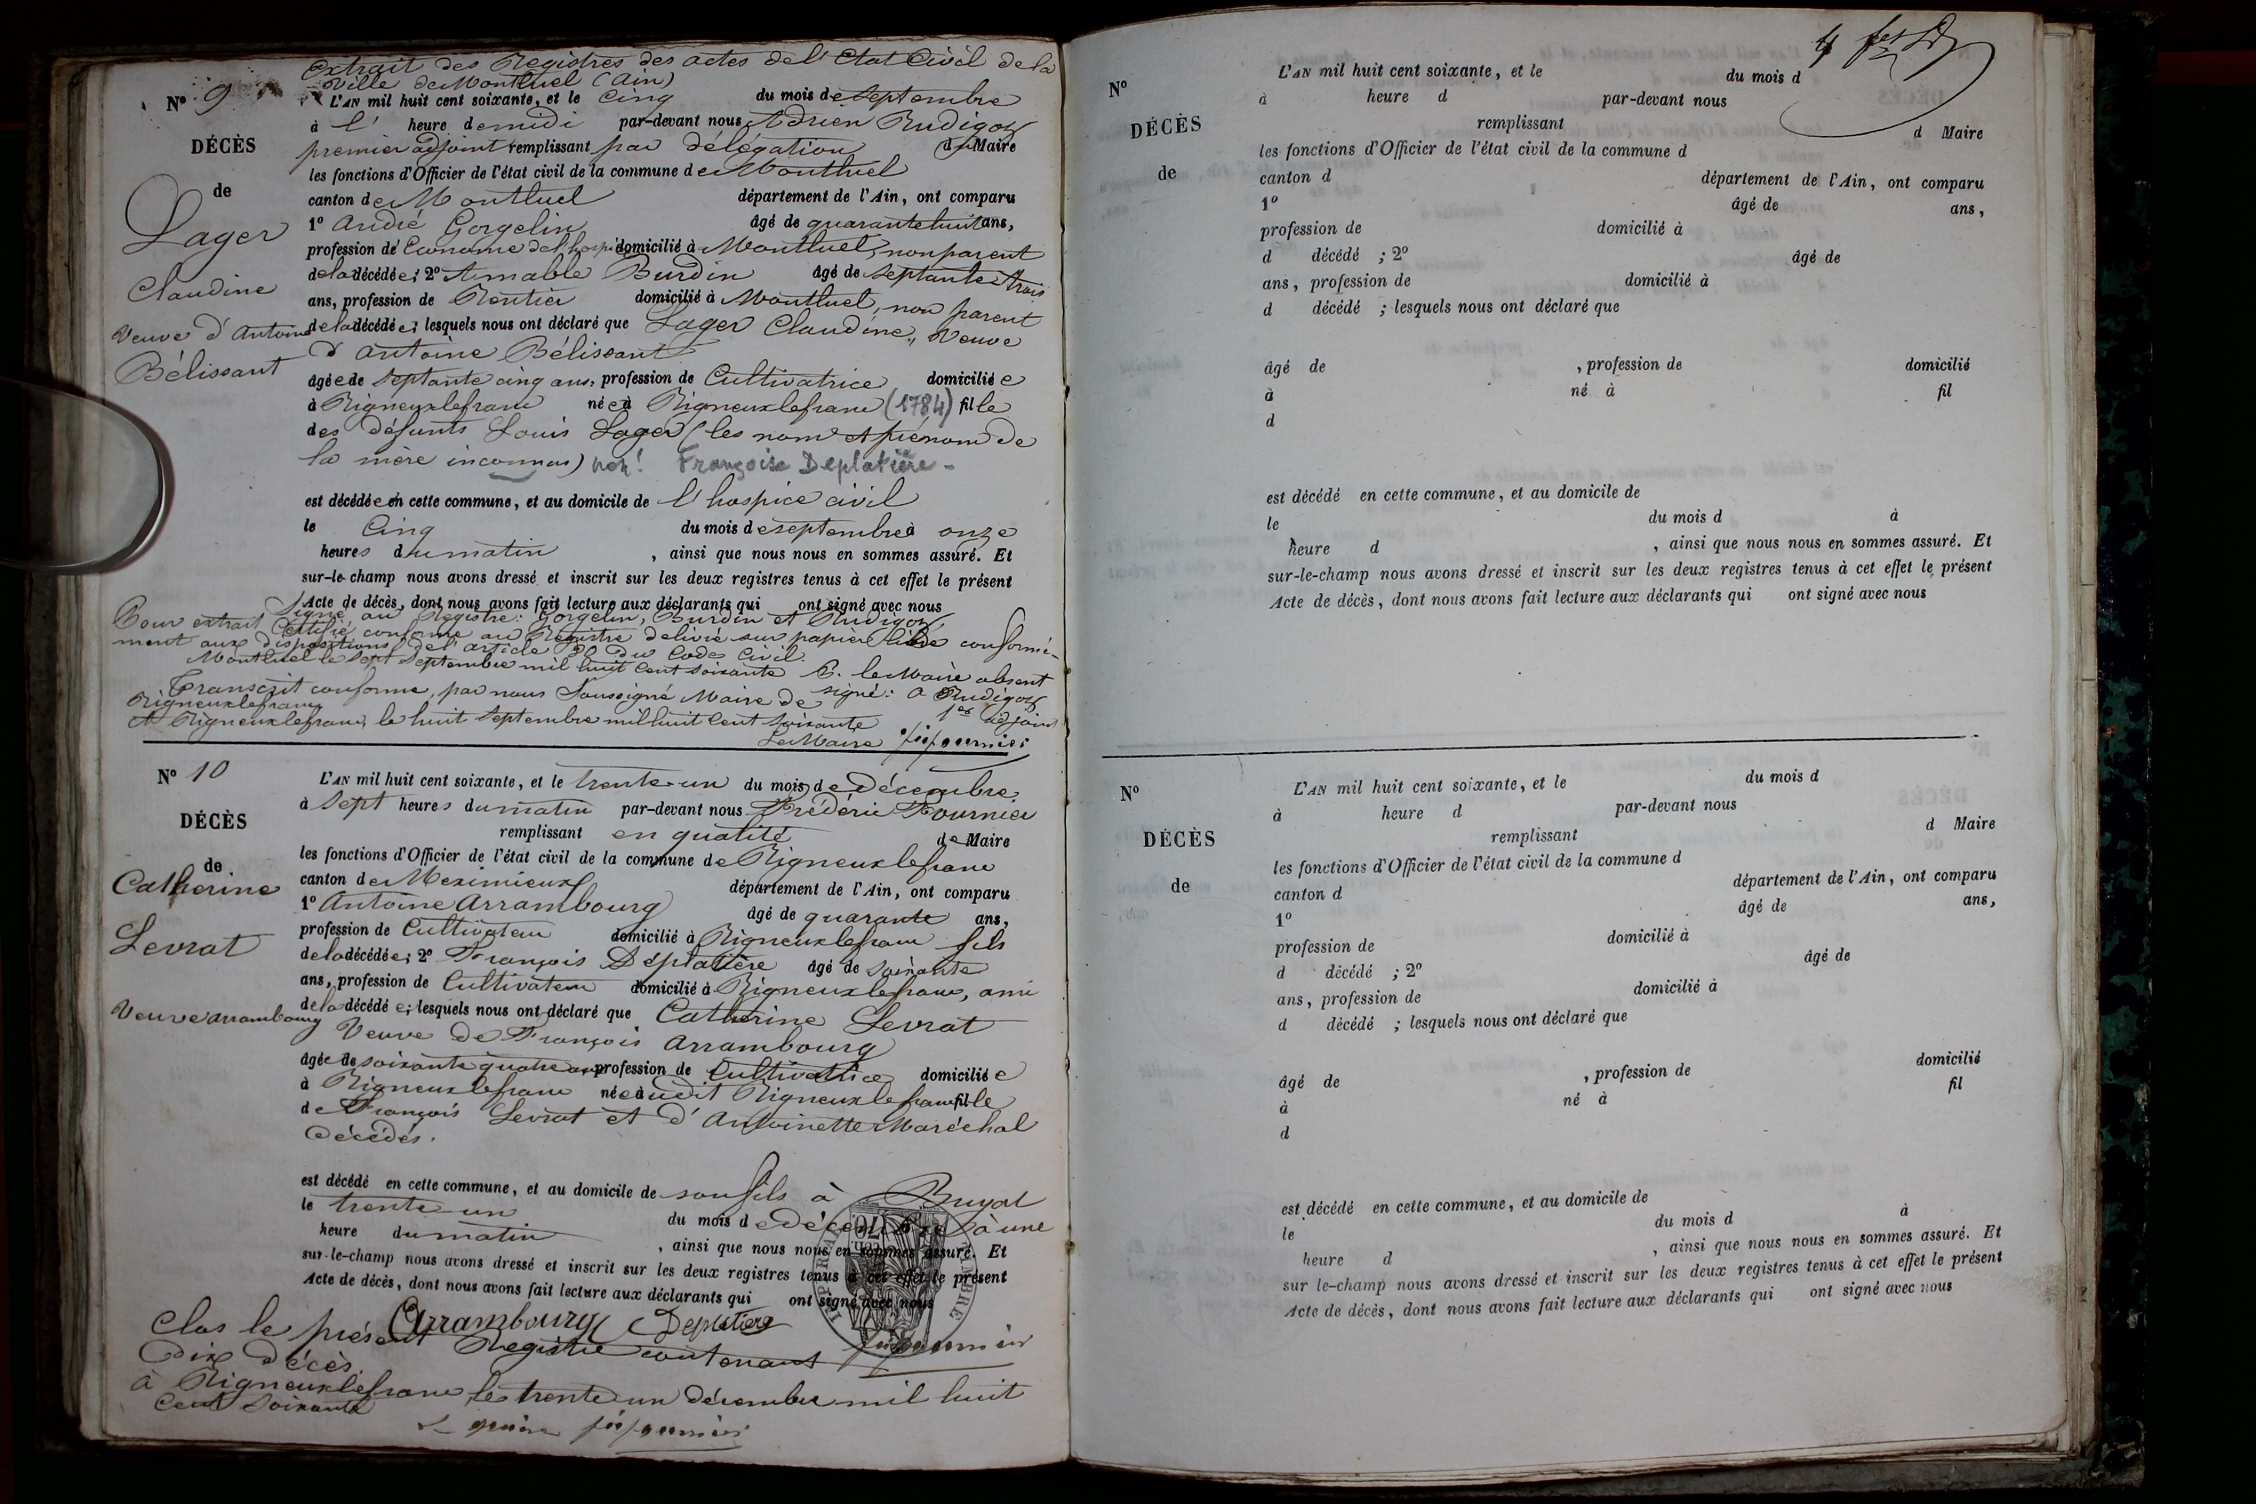 Extrait des Registres des actes de l'Etat Civil de la
Ville de Montluel (Ain)
N° 9
L'AN mil huit cent soixante, et le cinq du mois de septembre
à l' heure de midi par-devant nous Adrien Rudigoz
DÉCÈS
premier adjoint remplissant par délégation du Maire
les fonctions d'Officier de l'état civil de la commune de Montluel
de
canton de Montluel département de l'Ain, ont comparu
Lager
1° André Gorgelin âgé de quarante huit ans,
profession de Econome de l'hospice domicilié à Montluel, non parent
de la décédée; 2° Amable Burdin âgé de septante trois
Claudine
ans, profession de Rentier domicilié à Montluel, non parent
Veuve d'Antoine
de la décédée; lesquels nous ont déclaré que Lager Claudine, Veuve
d'Antoine Bélissant
Bélissant
âgée de septante cinq ans, profession de Cultivatrice domiciliée
à Rigneuxlefranc née à Rigneuxlefranc (1784) fille
des défunts Louis Lager (les nom et prénom de
la mère inconnus) non! Françoise Deplatière -
est décédée en cette commune, et au domicile de l'hospice civil
le Cinq du mois de septembre à onze
heures du matin , ainsi que nous nous en sommes assuré. Et
sur-le-champ nous avons dressé et inscrit sur les deux registres tenus à cet effet le présent
Acte de décès, dont nous avons fait lecture aux déclarants qui ont signé avec nous
Signé au Registre: Gorgelin, Burdin et Rudigoz
Pour extrait Certifié conforme au Registre delivré sur papier libre conformé-
ment aux dispositions de l'article 80 du Code Civil.
Montluel le sept septembre mil huit cent soixante P. le Maire absent
signé: A Rudigoz
1er adjoint
Transcrit conforme, par nous Soussigné Maire de
Rigneuxlefranc
A Rigneuxlefranc, le huit septembre mil huit cent soixante
Le Maire
N° 10
L'AN mil huit cent soixante, et le trente-un du mois de Décembre
à sept heures du matin par-devant nous Frédéric Fournier
DÉCÈS
remplissant en qualité de Maire
les fonctions d'Officier de l'état civil de la commune de Rigneuxlefranc
de
canton de Meximieux département de l'Ain, ont comparu
Catherine
1° Antoine Arrambourg âgé de quarante ans,
profession de Cultivateur domicilié à Rigneuxlefranc fils
Levrat
de la décédée; 2° François Déplatière âgé de soixante
ans, profession de Cultivateur domicilié à Rigneuxlefranc, ami
Veuve Arrambourg
de la décédée; lesquels nous ont déclaré que Catherine Levrat
Veuve de François Arrambourg
âgée de soixante quatre ans profession de Cultivatrice domiciliée
à Rigneuxlefranc née audit Rigneuxlefranc fille
de François Levrat et d'Antoinette Maréchal
Décédés.
est décédé en cette commune, et au domicile de son fils à Bruyat
le trente-un du mois de décembre à une
heure du matin , ainsi que nous nous en sommes assuré. Et
sur-le-champ nous avons dressé et inscrit sur les deux registres tenus à cet effet le présent
Acte de décès, dont nous avons fait lecture aux déclarants qui ont signé avec nous
Arrambourg Deplatière
Clos le présent Registre contenant
Dix décès
à Rigneuxlefranc, le trente un décembre mil huit
Cent soixante
Le maire
TIMBRE
IMPÉRIAL
N°
L'AN mil huit cent soixante, et le du mois d
à heure d par-devant nous
DÉCÈS
remplissant d Maire
les fonctions d'Officier de l'état civil de la commune d
de
canton d département de l'Ain, ont comparu
1° âgé de ans,
profession de domicilié à
d décédé ; 2° âgé de
ans, profession de domicilié à
d décédé ; lesquels nous ont déclaré que
âgé de , profession de domicilié
à né à fil
d
est décédé en cette commune, et au domicile de
le du mois d à
heure d , ainsi que nous nous en sommes assuré. Et
sur-le-champ nous avons dressé et inscrit sur les deux registres tenus à cet effet le présent
Acte de décès, dont nous avons fait lecture aux déclarants qui ont signé avec nous
N°
L'AN mil huit cent soixante, et le du mois d
à heure d par-devant nous
DÉCÈS
remplissant d Maire
les fonctions d'Officier de l'état civil de la commune d
de
canton d département de l'Ain, ont comparu
1° âgé de ans,
profession de domicilié à
d décédé ; 2° âgé de
ans, profession de domicilié à
d décédé ; lesquels nous ont déclaré que
âgé de , profession de domicilié
à né à fil
d
est décédé en cette commune, et au domicile de
le du mois d à
heure d , ainsi que nous nous en sommes assuré. Et
sur le-champ nous avons dressé et inscrit sur les deux registres tenus à cet effet le présent
Acte de décès, dont nous avons fait lecture aux déclarants qui ont signé avec nous